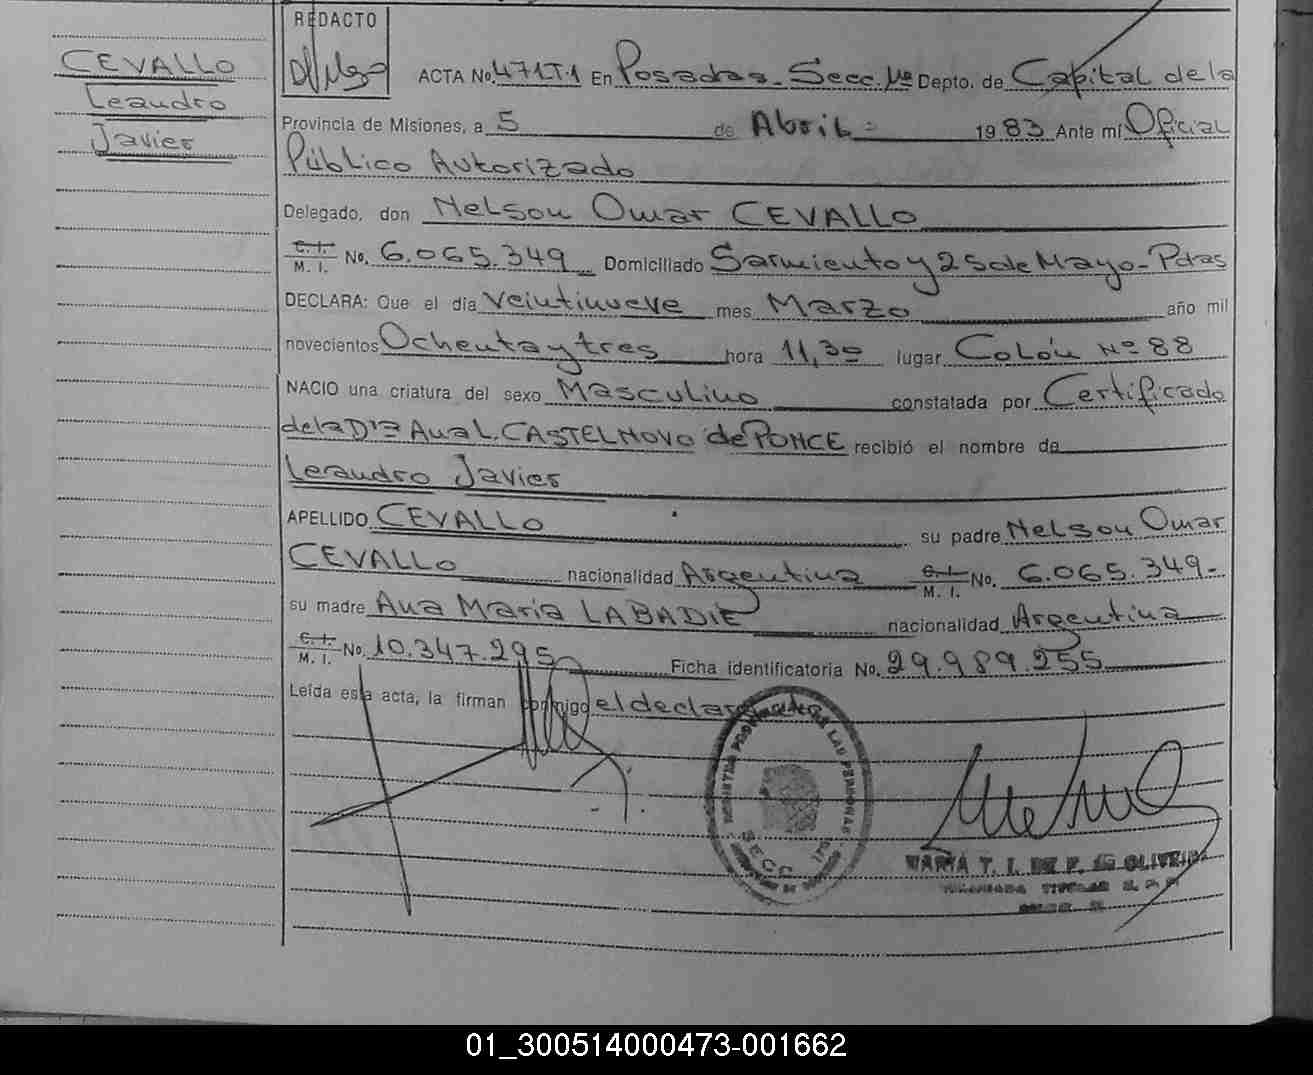 CEVALLO
Leandro
Javier
REDACTO
ACTA No. 471T·1 En Posadas - Secc. 1ª Depto. de Capital de la
Provincia de Misiones, a 5 de Abril = 1983 Ante mí Oficial
Público Autorizado
Delegado, don Nelson Omar CEVALLO
C. I.
M. I. No. 6.065.349 Domiciliado Sarmiento y 25 de Mayo - Pdas
DECLARA: Que el día veintinueve mes Marzo año mil
novecientos Ochenta y tres hora 11,30 lugar Colón Nº 88
NACIO una criatura del sexo Masculino constatada por Certificado
de la Drª Ana L. CASTELNOVO de PONCE recibió el nombre de
Leandro Javier
APELLIDO CEVALLO su padre Nelson Omar
CEVALLO nacionalidad Argentina C. I.
M. I. No. 6.065.349-
su madre Ana María LABADIE nacionalidad Argentina
C. I.
M. I. No. 10.347.295 Ficha identificatoria No. 29.989.255
Leída esta acta, la firman conmigo el declarante
REGISTRO PROVINCIAL DE LAS PERSONAS
SECC.
MARIA T. I. DE F. DE OLIVEIRA
TITULAR
01_300514000473-001662